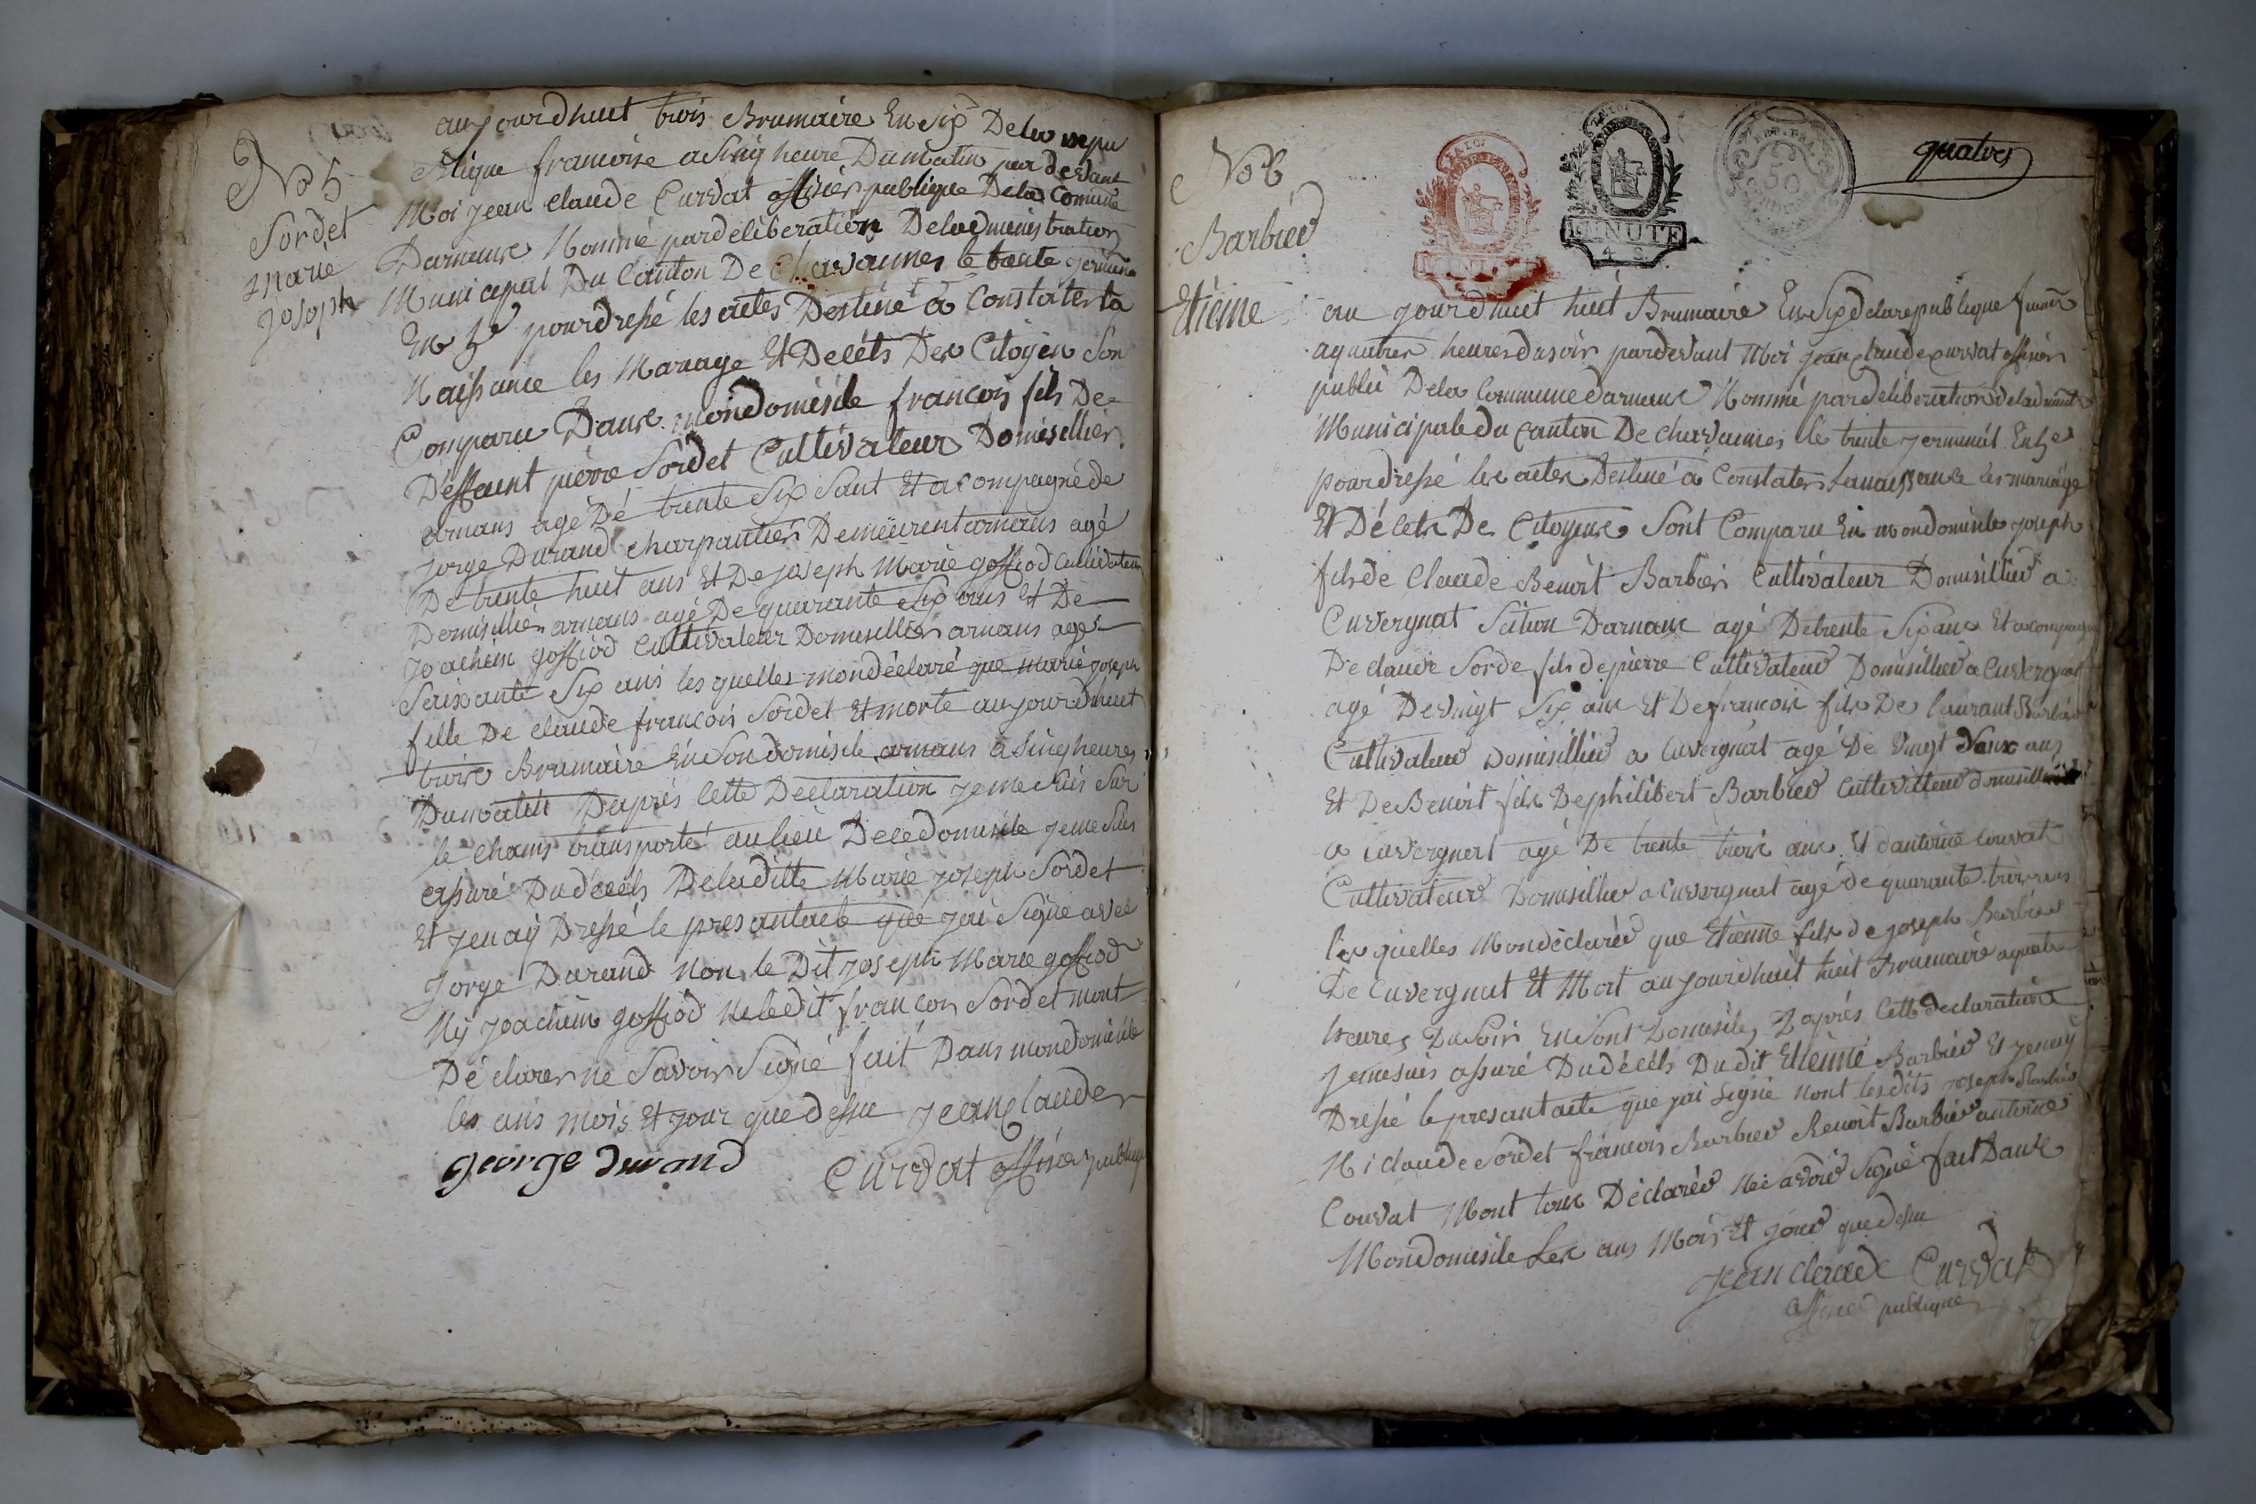 No 5
Sordet
marie
joseph
aujourdhuit trois Brumaire En Six De la repu
blique francoise a Sinq heure Du matin par devant
Moi jean claude Curvat officier publique De la Comune
Darnans Nommé par deliberation De ladministration
Municipal Du Canton De Chavannes le trente germinal
En 5e pour dressé les actes Destiné a Constater la
Naissance les Mariage Et Décéts Des Citoÿen Son
Comparu Dans mondomisile francois fils De
Deffaint pierre Sordet Cultivateur Domisillier
arnans agé De trente Six Sant Et acompagné de
jorge Durand charpantier Demeurent arnans agé
De trente huit ans Et De joseph Marie goffiod Cultivateur
Domisillier arnans agé De quarante Six ans Et De
joachim goffiod Cultivateur Domisillier arnans agé
Saixante Six ans les quelles mondéclaré que marie joseph
fille De claude francois Sordet Et morte aujourdhuit
trois Brumaire En Son domisile arnans a Sinq heures
Dumatin Daprés Cette Déclaration je me Suis Sur
le cham transporté aulieu De ce domisile je me Suis
assuré Du décéts De laditte Marie joseph Sordet
Et jen aÿ Dressé le presantacte que jai Signé avec
jorge Durand Non le Dit joseph Marie goffiod
Ny joachim goffiod Ne ledit francois Sordet mont
Déclarer ne Savoir Signé fait Dans mondomisile
les ans mois Et jour que dessu jean claude
george durand Curvat officier publique
quatres
No 6
Barbier
Etiéne
MINUTE
MINUTE
au jourdhuit huit Brumaire En Six de la republique
a quatres heures du soir pardevant Moi jean claude curvat officier
public De la Commune darnans Nommé par deliberation de ladminist
Municipale du Canton De chavannes le trente jerminal En 5e
pour dressé les actes Destiné a Constater la naissance les mariage
Et Décets Des Citoyens Sont Comparu En mondomisile joseph
fils de Claude Benoit Barbier Cultivateur Domisillier a
Cuvergnat Sition Darnans agé De trente Six ans Et acompagné
De claude Sorde fils de pierre Cultivateur Domisillier a Cuvergnat
agé De vingt Six ans Et De francois fils De laurant Barbier
Cultivateur Domisillier a Cuvergnat agé De vingt Deux ans
Et De Benoit fils De philibert Barbier Cultivateur domisillier
a Cuvergnat agé De trente trois ans Et dantoine Couvat
Cultivateur Domisillier a Cuvergnat agé de quarante trois ans
les quelles Mondéclarer que Etienne fils de joseph Barbier
De Cuvergnat Et Mort au jourdhuit huit Brumaire a quatre
heures Du Soir En Sont Domisile Daprés Cette declaration
je me suis assuré Du décéts Du dit Etienne Barbier Et jen aÿ
Dressé le presantacte que jai Signé Nont lesdits joseph Barbier
Ni claude Sordet francois Barbier Benoit Barbier antoine
Couvat Mont tous Déclarér Ne Savoir Signé fait Dans
Mondomisile Les ans Mois Et jour que dessu
jean claude Curvat
officier publique